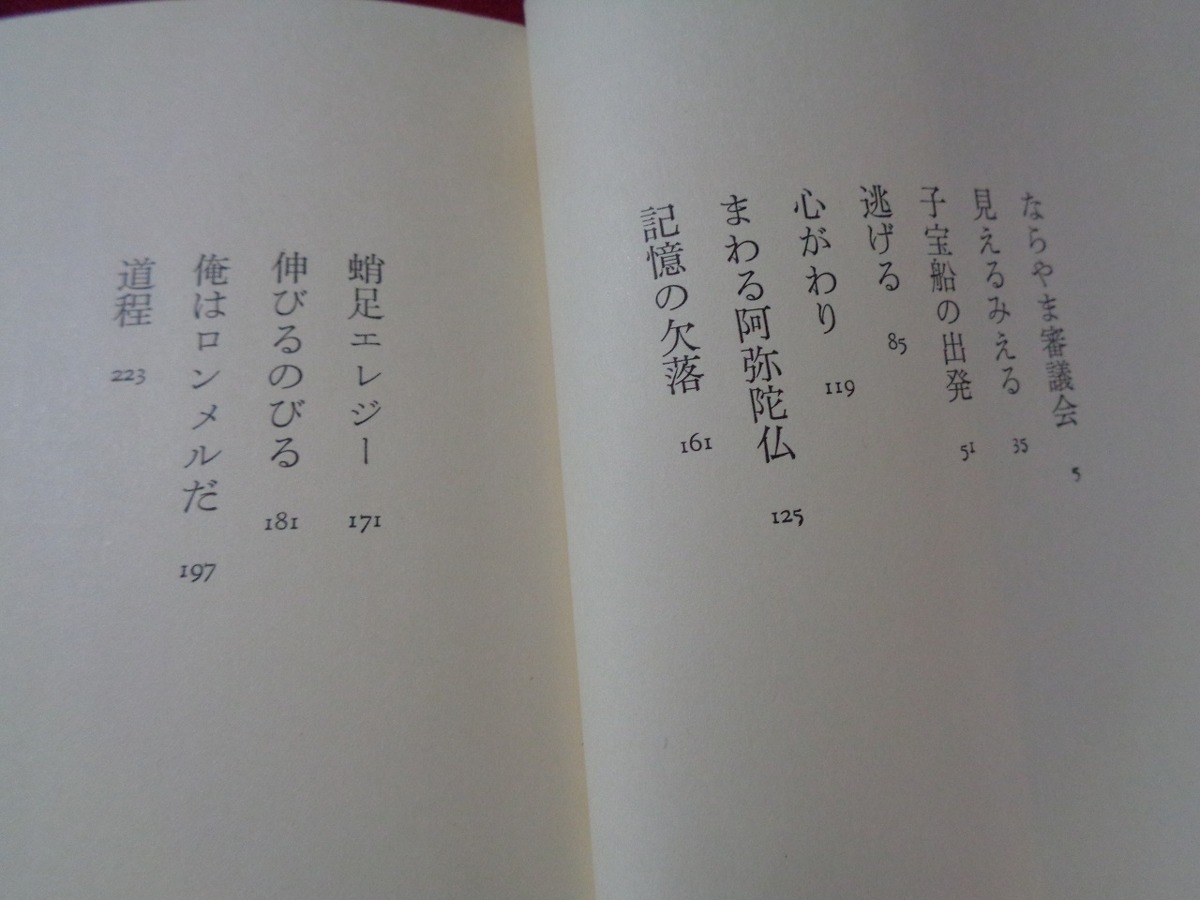 ならやま審議会 5
見えるみえる 35
子宝船の出発 51
逃げる 85
心がわり 119
まわる阿弥陀仏 125
記憶の欠落 161
蛸足エレジー 171
伸びるのびる 181
俺はロンメルだ 197
道程 223